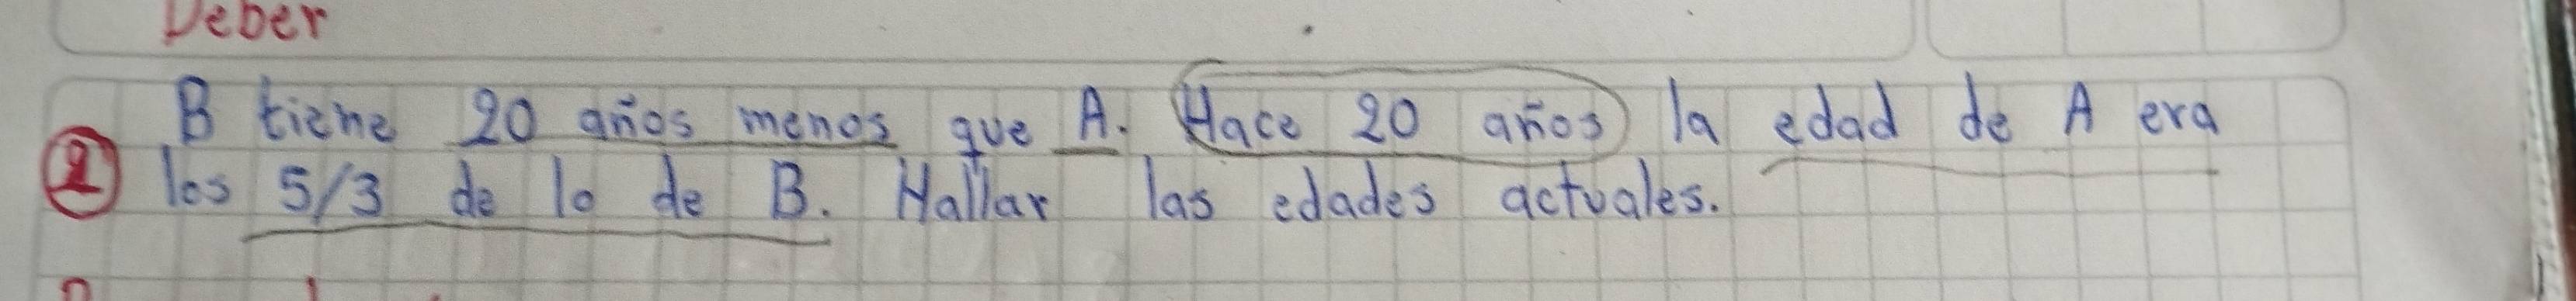 Deber
B tiene 20 años menos que A. Hace 20 años la edad de A era
② los 5/3 de lo de B. Hallar las edades actuales.